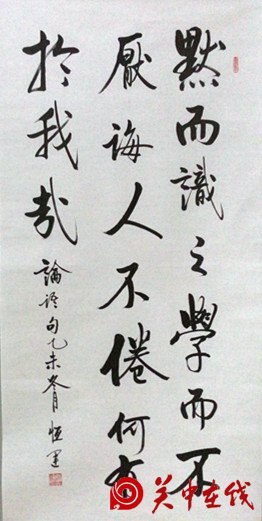 默而識之學而不
厭誨人不倦何有
於我哉
論語句乙未冬月恒
关中在线